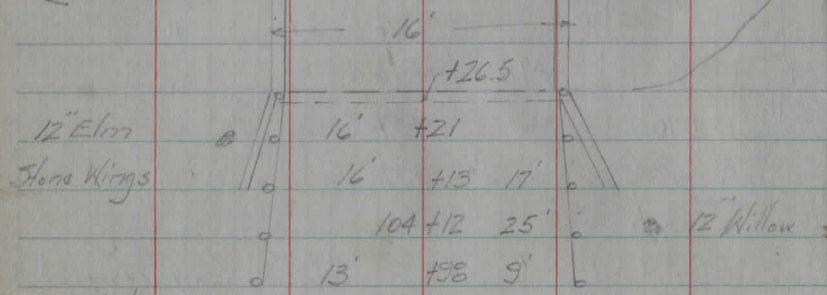 16'
+26.5
12" Elm 16' +21
Stone Wings 16' +13 17'
104 +12 25' 12" Willow
13' +98 9'